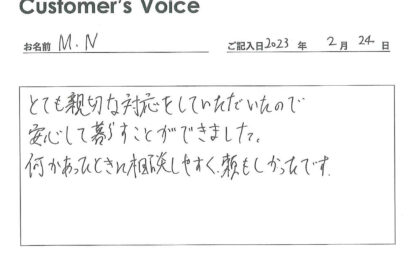 Customer's Voice
お名前 M.N ご記入日2023 年 2 月 24 日
とても親切な対応をしていただいたので
安心して暮らすことができました。
何かあったときに相談しやすく、頼もしかったです。